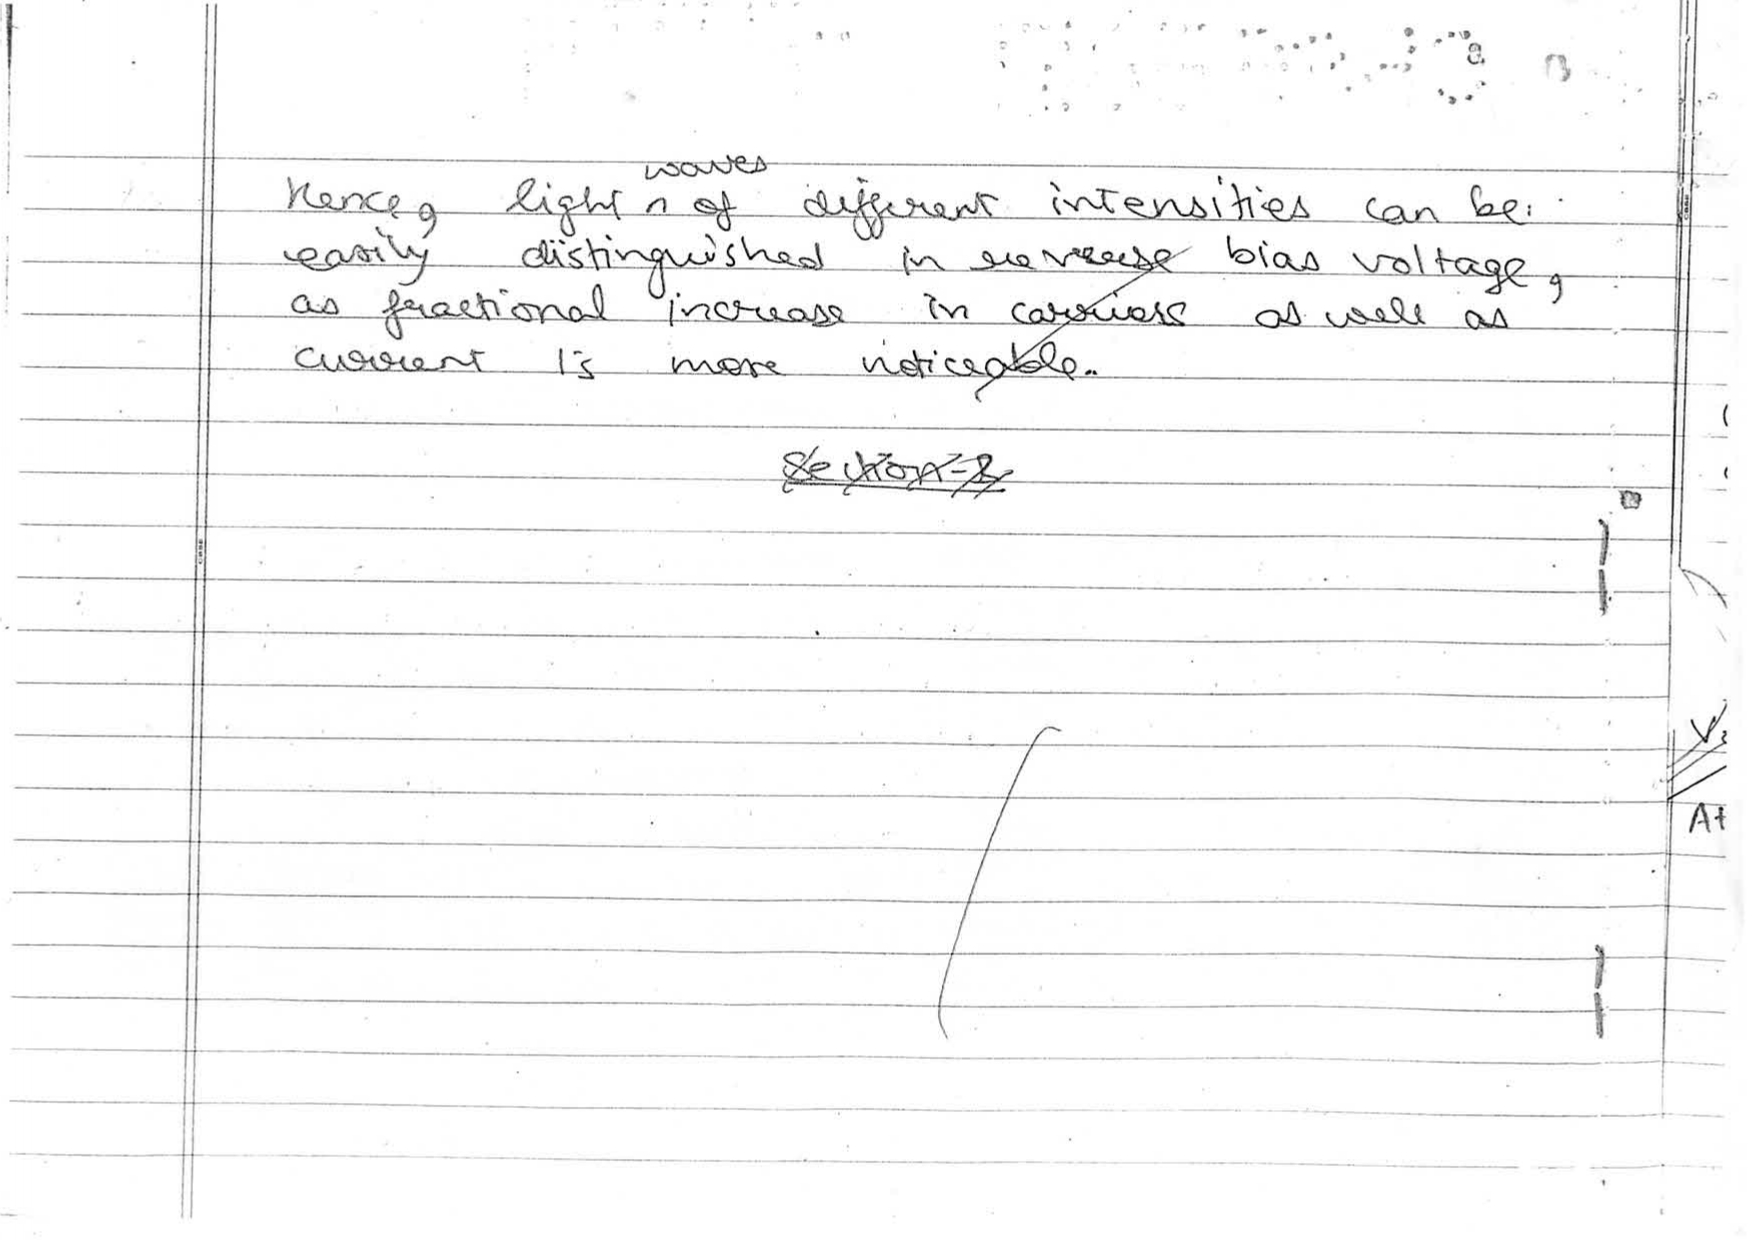 Hence, light waves of different intensities can be
easily distinguished in reverse bias voltage,
as fractional increase in carriers as well as
current is more noticeable.